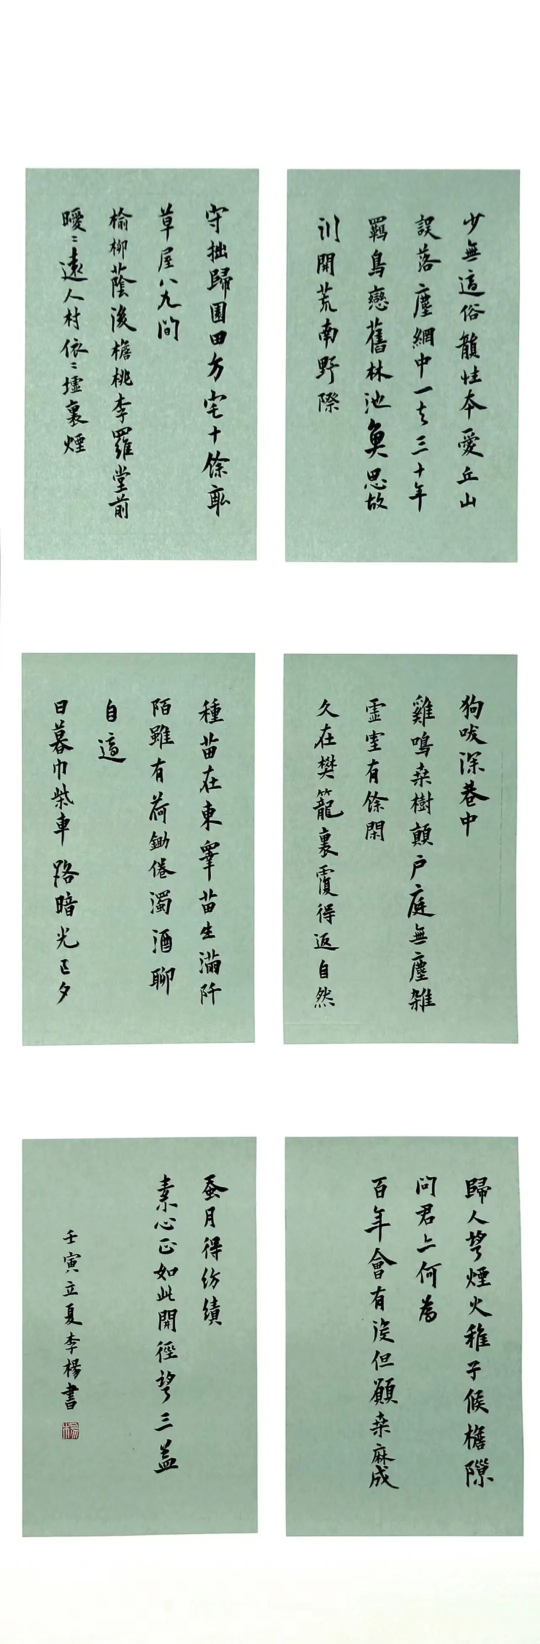 少無適俗韻性本愛丘山
誤落塵網中一去三十年
羈鳥戀舊林池魚思故
渊開荒南野際
守拙歸園田方宅十餘畝
草屋八九間
榆柳蔭後檐桃李羅堂前
曖〻遠人村依〻墟裏煙
狗吠深巷中
雞鳴桑樹顛戶庭無塵雜
虛室有餘閑
久在樊籠裏覆得返自然
種苗在東皋苗生滿阡
陌雖有荷鋤倦濁酒聊
自適
日暮巾柴車路暗光已夕
歸人望煙火稚子候檐隙
問君亦何為
百年會有役但願桑麻成
蚕月得紡績
素心正如此開徑望三益
壬寅立夏李楊書